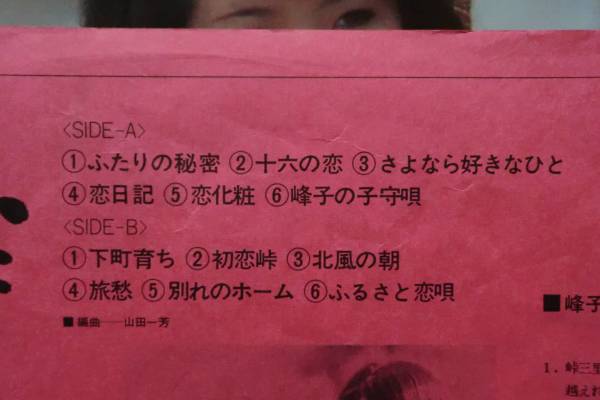 〈SIDE-A〉
①ふたりの秘密 ②十六の恋 ③さよなら好きなひと
④恋日記 ⑤恋化粧 ⑥峰子の子守唄
〈SIDE-B〉
①下町育ち ②初恋峠 ③北風の朝
④旅愁 ⑤別れのホーム ⑥ふるさと恋唄
■編曲──山田一芳
■峰子
1. 峠三里
越えれ